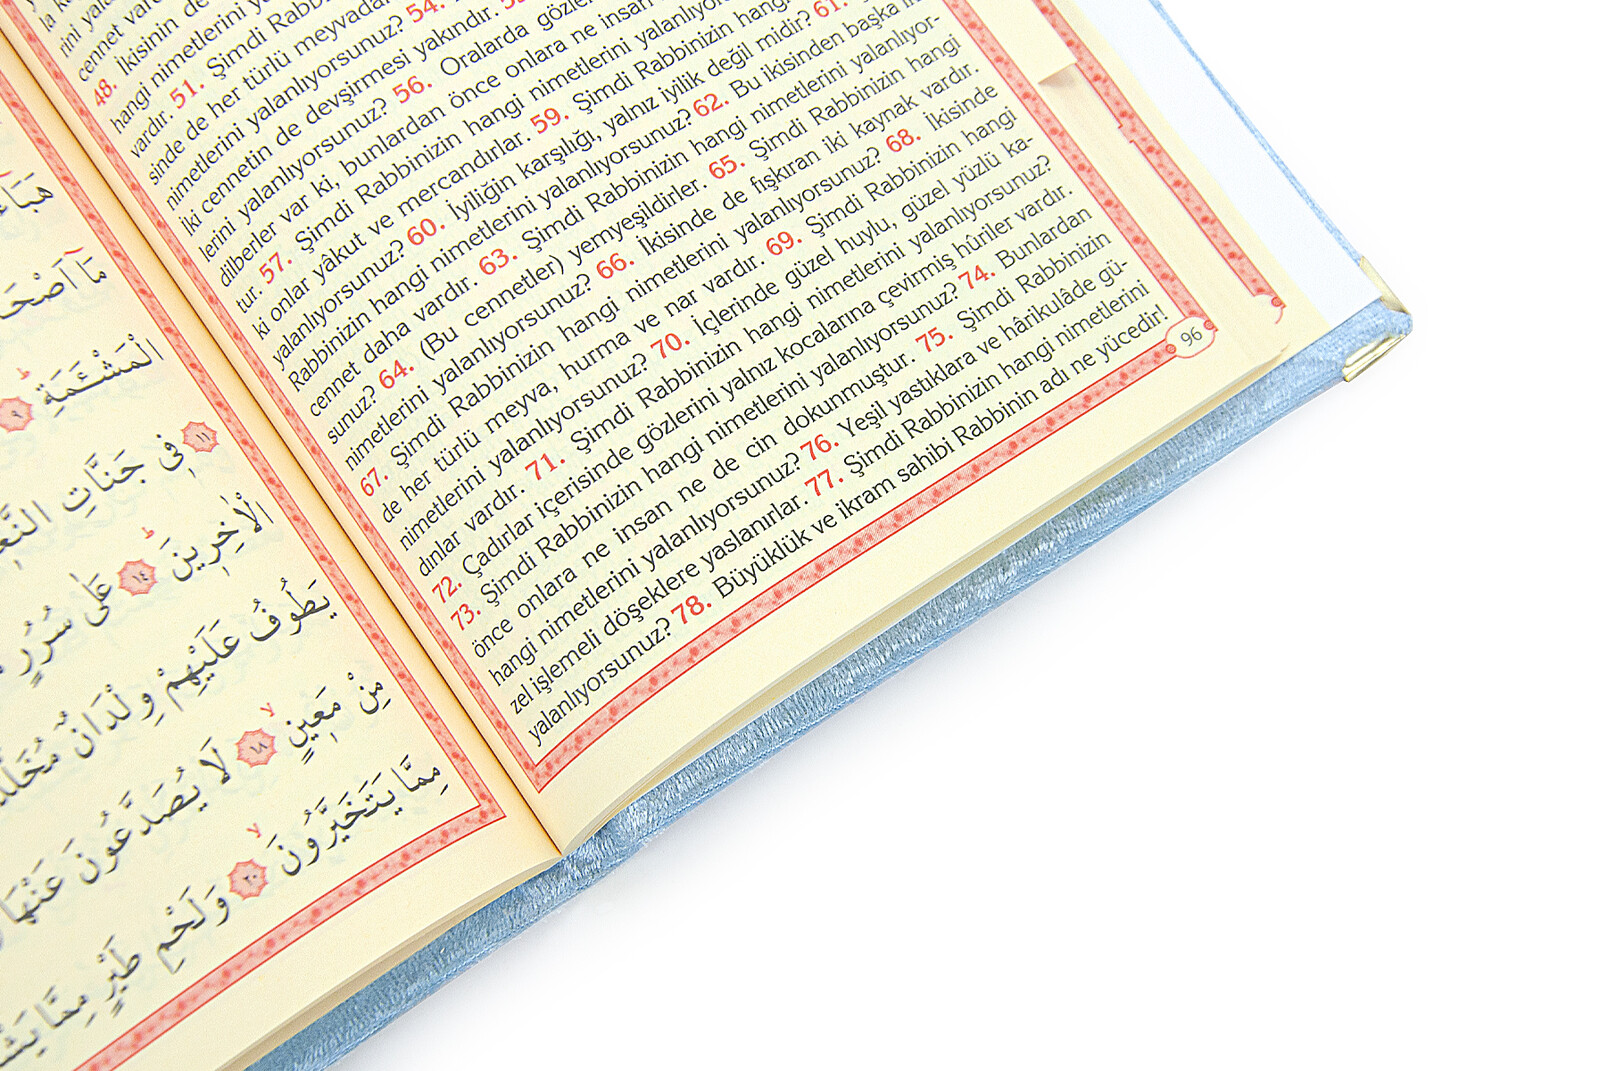 la k
rini yala
cennet vard
48. İkisinin de
hangi nimetlerini ya
vardır. 51. Şimdi Rabbi
sinde de her türlü meyvadan
nimetlerini yalanlıyorsunuz? 54.
İki cennetin de devşirmesi yakındır.
lerini yalanlıyorsunuz? 56. Oralarda gözle
dilberler var ki, bunlardan önce onlara ne insan
tur. 57. Şimdi Rabbinizin hangi nimetlerini yalanlıyor
ki onlar yâkut ve mercandırlar. 59. Şimdi Rabbinizin hangi
yalanlıyorsunuz? 60. İyiliğin karşılığı, yalnız iyilik değil midir? 61.
Rabbinizin hangi nimetlerini yalanlıyorsunuz? 62. Bu ikisinden başka iki
cennet daha vardır. 63. Şimdi Rabbinizin hangi nimetlerini yalanlıyor-
sunuz? 64. (Bu cennetler) yemyeşildirler. 65. Şimdi Rabbinizin hangi
nimetlerini yalanlıyorsunuz? 66. İkisinde de fışkıran iki kaynak vardır.
67. Şimdi Rabbinizin hangi nimetlerini yalanlıyorsunuz? 68. İkisinde
de her türlü meyva, hurma ve nar vardır. 69. Şimdi Rabbinizin hangi
nimetlerini yalanlıyorsunuz? 70. İçlerinde güzel huylu, güzel yüzlü ka-
dınlar vardır. 71. Şimdi Rabbinizin hangi nimetlerini yalanlıyorsunuz?
72. Çadırlar içerisinde gözlerini yalnız kocalarına çevirmiş hûriler vardır.
73. Şimdi Rabbinizin hangi nimetlerini yalanlıyorsunuz? 74. Bunlardan
önce onlara ne insan ne de cin dokunmuştur. 75. Şimdi Rabbinizin
hangi nimetlerini yalanlıyorsunuz? 76. Yeşil yastıklara ve hârikulâde gü-
zel işlemeli döşeklere yaslanırlar. 77. Şimdi Rabbinizin hangi nimetlerini
yalanlıyorsunuz? 78. Büyüklük ve ikram sahibi Rabbinin adı ne yücedir!
96
هَبَاء
مَٓا اَصْحَا
الْمَشْـَٔمَةِ ٩
١١ فٖى جَنَّاتِ النَّعٖ
الْاٰخِرٖينَ ١٤ عَلٰى سُرُرٍ
يَطُوفُ عَلَيْهِمْ وِلْدَانٌ مُخَلَّد
مِنْ مَعٖينٍ ١٨ لَا يُصَدَّعُونَ عَنْهَا
مِمَّا يَتَخَيَّرُونَ ٢٠ وَلَحْمِ طَيْرٍ مِمَّا يَشْ